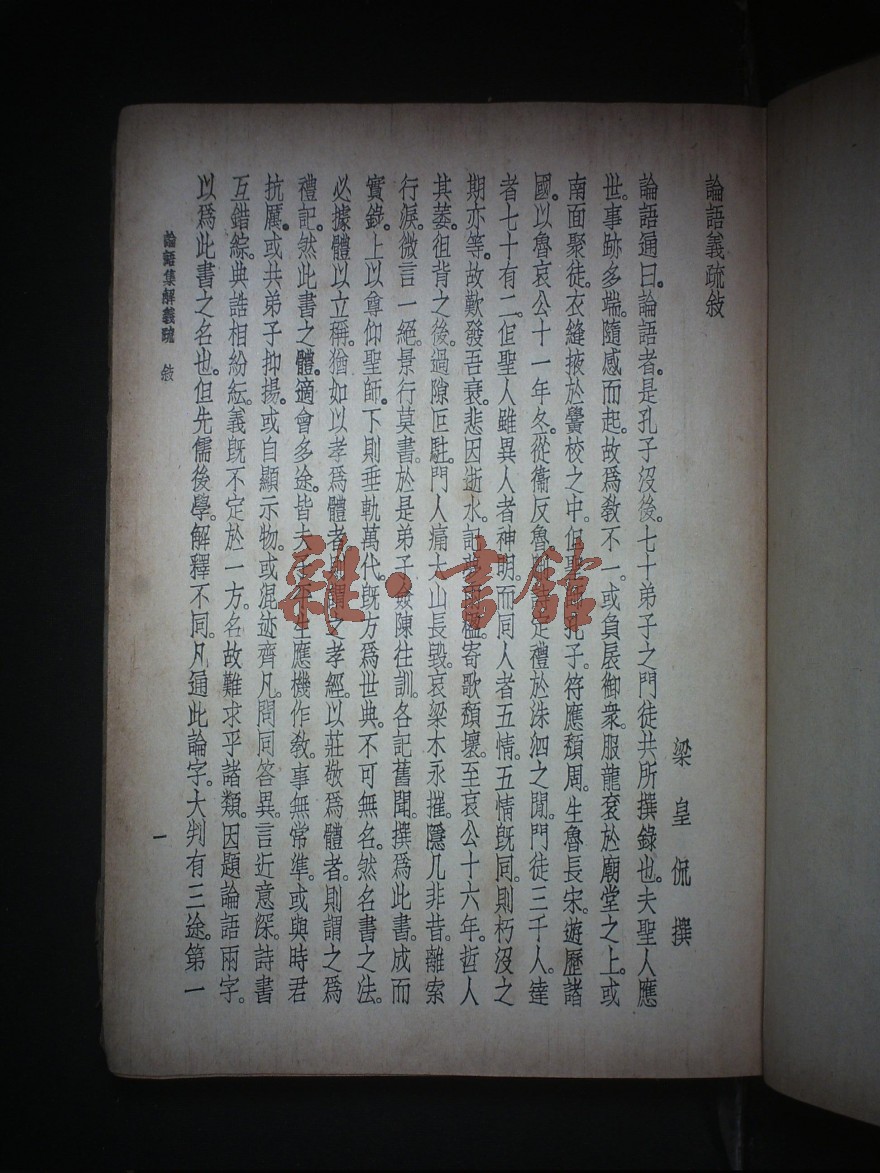 論語義疏敍
梁皇侃撰
論語通曰。論語者。是孔子沒後。七十弟子之門徒共所撰錄也。夫聖人應
世。事跡多端。隨感而起。故爲敎不一。或負扆御衆。服龍袞於廟堂之上。或
南面聚徒。衣縫掖於黌校之中。但聖孔子。符應頹周。生魯長宋。遊歷諸
國。以魯哀公十一年冬。從衞反魯。定禮於洙泗之閒。門徒三千人。達
者七十有二。但聖人雖異人者神明。而同人者五情。五情旣同。則朽沒之
期亦等。故歎發吾衰。悲因逝水。寄歌頹壞。至哀公十六年。哲人
其萎。徂背之後。過隙叵駐。門人痛大山長毀。哀梁木永摧。隱几非昔。離索
行淚。微言一絕。景行莫書。於是弟子僉陳往訓。各記舊聞。撰爲此書。成而
實錄。上以尊仰聖師。下則垂軌萬代。旣方爲世典。不可無名。然名書之法。
必據體以立稱。猶如以孝爲體者。則謂之孝經。以莊敬爲體者。則謂之爲
禮記。然此書之體。適會多途。皆夫子平生應機作敎。事無常準。或與時君
抗厲。或共弟子抑揚。或自顯示物。或混迹齊凡。問同答異。言近意深。詩書
互錯綜。典誥相紛紜。義旣不定於一方。名故難求乎諸類。因題論語兩字。
以爲此書之名也。但先儒後學。解釋不同。凡通此論字。大判有三途。第一
論語集解義疏 敍
一
雜·書館